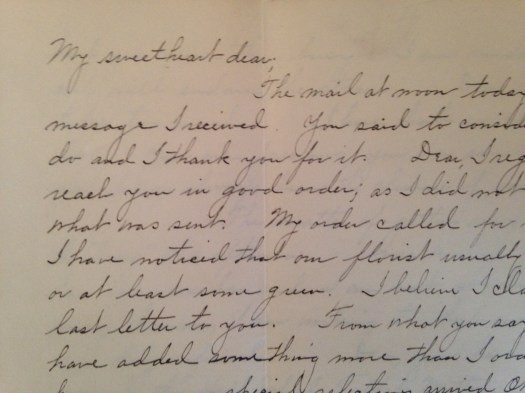 My sweetheart dear,
The mail at noon today
message I received. You said to
do and I thank you for it. Dear, I reg
reach you in good order; as I did not
what was sent. My order called for
I have noticed that our florist usually
or at least some green. I believe I
last letter to you. From what you say
have added something more than I
special selection arrived